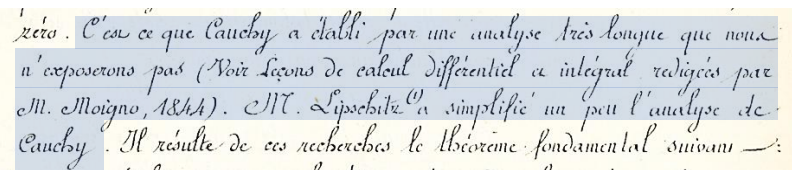 zéro. C'est ce que Cauchy a établi par une analyse très longue que nous
n'exposerons pas (Voir Leçons de calcul différentiel et intégral redigées par
M. Moigno, 1844). M. Lipschitz (1) a simplifié un peu l'analyse de
Cauchy. Il résulte de ces recherches le théorème fondamental suivant —: